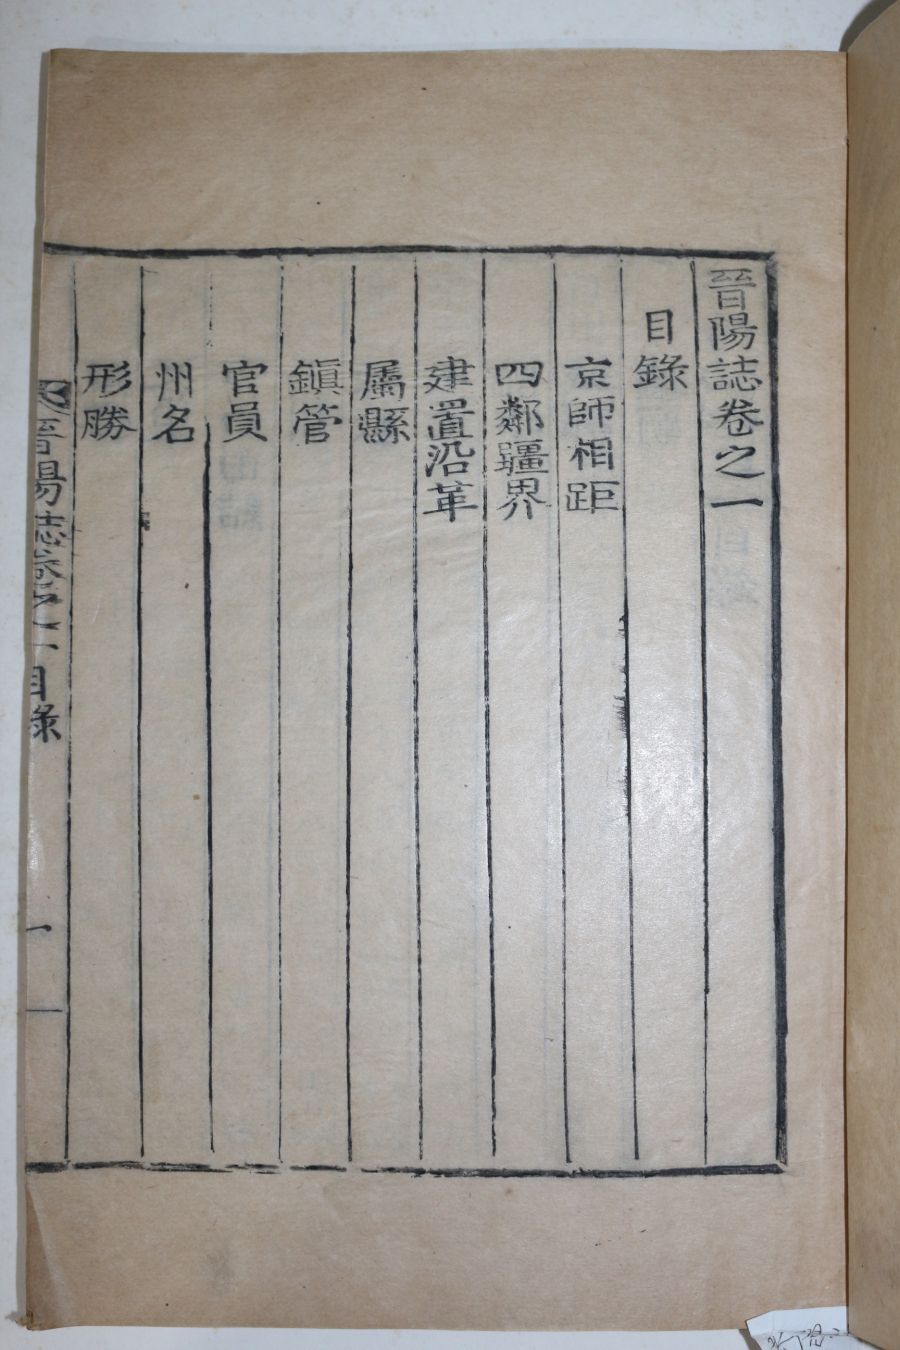 晉陽誌卷之一
目錄
京師相距
四鄰疆界
建置沿革
屬縣
鎭管
官員
州名
形勝
晉陽誌卷之一目錄
一